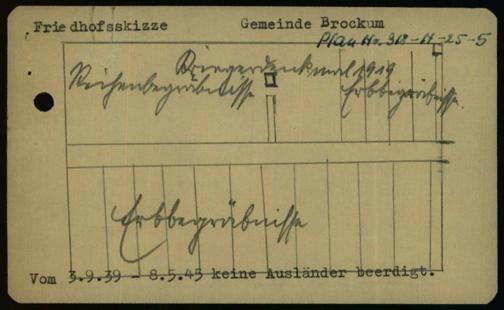 Friedhofsskizze Gemeinde Brockum
Plan Nr. 318-H-25-5
Kriegerdenkmal 1919
Reihenbegräbnisse Erbbegräbnisse
Erbbegräbnisse
Vom 3.9.39 - 8.5.45 keine Ausländer beerdigt.